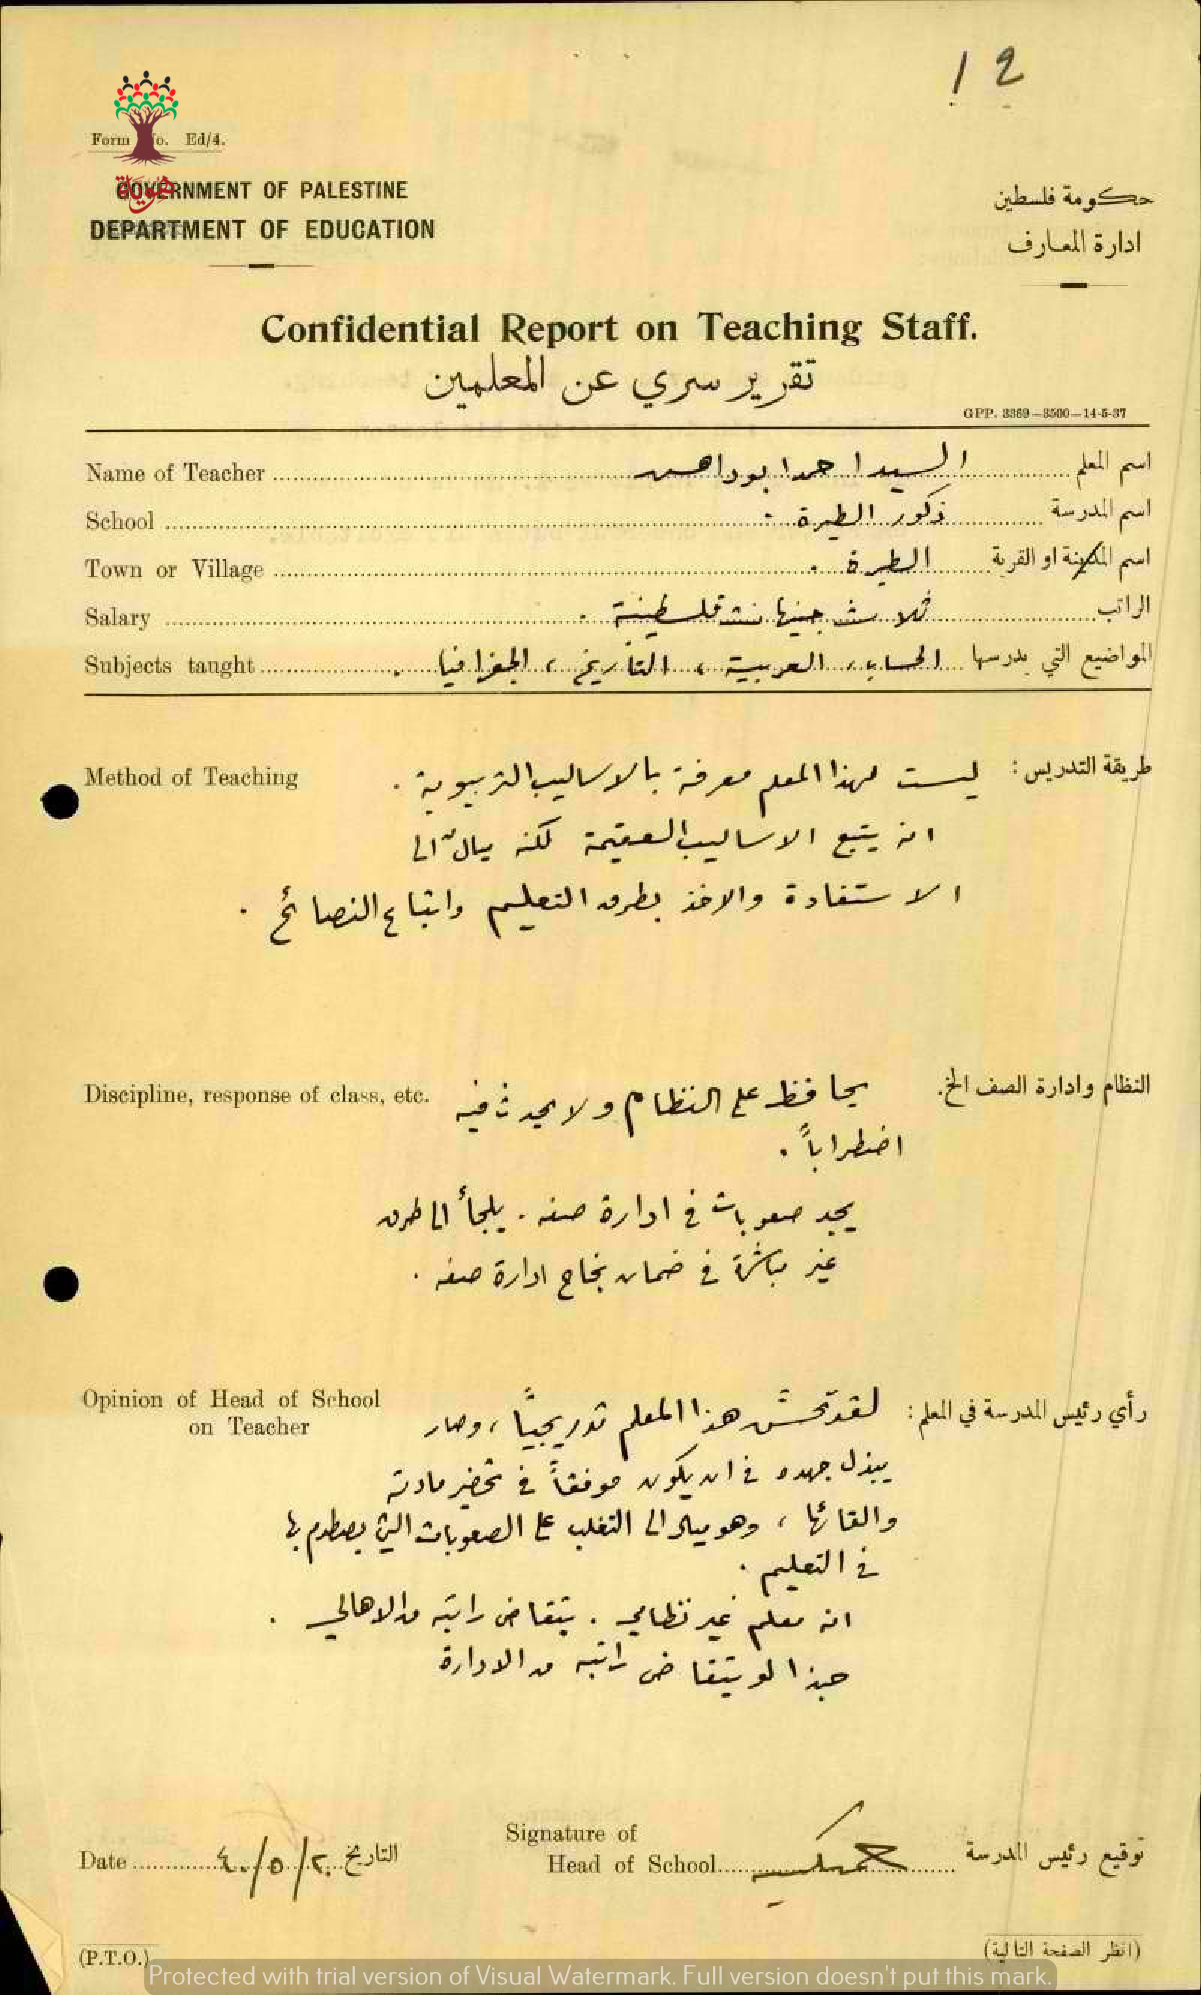 12
Form No. Ed/4.
هوية
GOVERNMENT OF PALESTINE
DEPARTMENT OF EDUCATION
حكومة فلسطين
ادارة المعارف
Confidential Report on Teaching Staff.
تقرير سري عن المعلمين
GPP. 3369—3500—14-5-37
Name of Teacher السيد احمد ابو راهسه اسم المعلم
School ذكور الطيرة . اسم المدرسة
Town or Village الطيرة . اسم المدينة او القرية
Salary ثلاث جنيهات فلسطينية . الراتب
Subjects taught الحساب ، العربية ، التأريخ ، الجغرافيا . المواضيع التي يدرسها
Method of Teaching ليست لهذا المعلم معرفة بالاساليب التربيوية . طريقة التدريس :
انه يتبع الاساليب العقيمة لكنه ميال الى
الاستفادة والاخذ بطرق التعليم واتباع النصائح .
Discipline, response of class, etc. يحافظ على النظام ولا يحدث فيه النظام وادارة الصف الخ.
اضطراباً .
يجد صعوبات في ادارة صفه . يلجأ الى طرق
غير مباشرة في ضمان نجاح ادارة صفه .
Opinion of Head of School on Teacher لقد تحسّن هذا المعلم تدريجيّاً ، وصار رأي رئيس المدرسة في المعلم :
يبذل جهده في ان يكون موفقاً في تحضير مادته
والقائها ، وهو ميال الى التغلب على الصعوبات التي يصطدم بها
في التعليم .
انه معلم غير نظامي . يتقاضى راتبه من الاهالي .
حبذا لو يتقاضى راتبه من الادارة
Date ٢٠/٥/٤٠ التاريخ
Signature of
Head of School توقيع رئيس المدرسة
(P.T.O.) (انظر الصفحة التالية)
Protected with trial version of Visual Watermark. Full version doesn't put this mark.